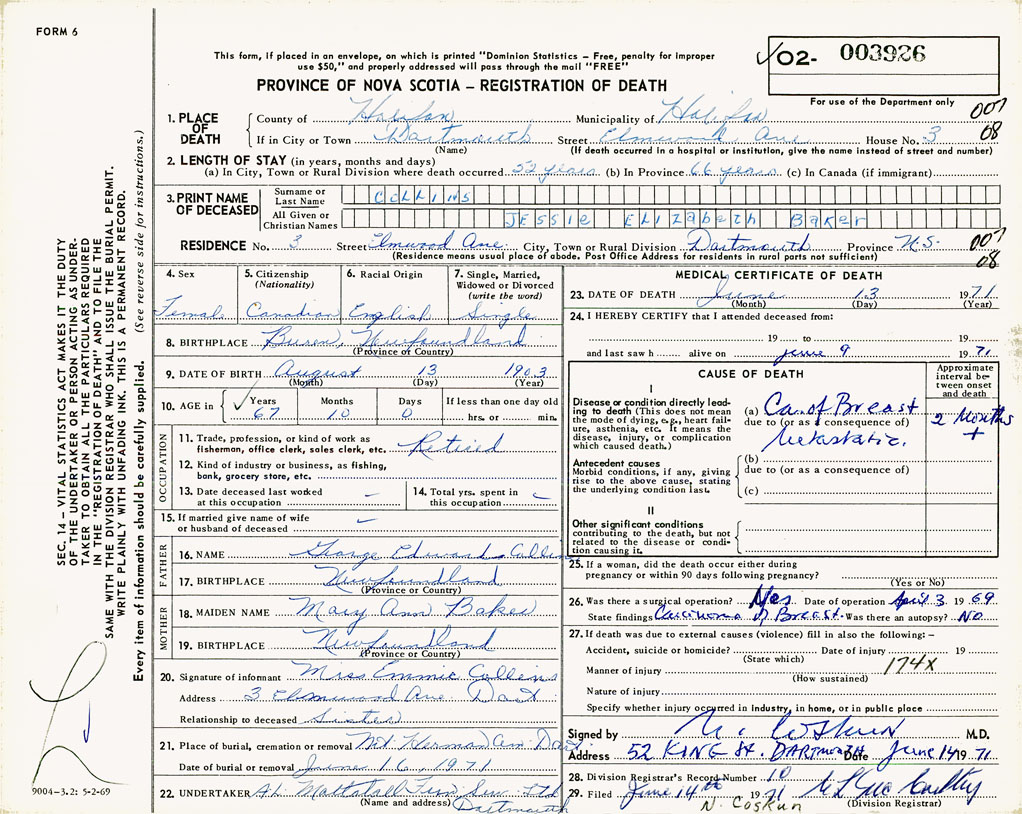 FORM 6
This form, if placed in an envelope, on which is printed "Dominion Statistics – Free, penalty for improper
use $50," and properly addressed will pass through the mail "FREE"
02- 003926
PROVINCE OF NOVA SCOTIA – REGISTRATION OF DEATH
For use of the Department only
007
08
1. PLACE OF DEATH
County of Halifax Municipality of Halifax
If in City or Town Dartmouth Street Elmwood Ave. House No. 3
(Name) (If death occurred in a hospital or institution, give the name instead of street and number)
2. LENGTH OF STAY (in years, months and days)
(a) In City, Town or Rural Division where death occurred 52 years (b) In Province 66 years (c) In Canada (if immigrant)
3. PRINT NAME OF DECEASED
Surname or Last Name COLLINS
All Given or Christian Names JESSIE ELIZABETH BAKER
RESIDENCE No. 3 Street Elmwood Ave. City, Town or Rural Division Dartmouth Province N.S.
(Residence means usual place of abode. Post Office Address for residents in rural parts not sufficient)
007
08
4. Sex
Female
5. Citizenship
(Nationality)
Canadian
6. Racial Origin
English
7. Single, Married,
Widowed or Divorced
(write the word)
Single
8. BIRTHPLACE Buren, Newfoundland
(Province or Country)
9. DATE OF BIRTH August 13 1903
(Month) (Day) (Year)
10. AGE in
Years Months Days If less than one day old
67 10 0 hrs. or min.
OCCUPATION
11. Trade, profession, or kind of work as
fisherman, office clerk, sales clerk, etc. Retired
12. Kind of industry or business, as fishing,
bank, grocery store, etc.
13. Date deceased last worked
at this occupation –
14. Total yrs. spent in
this occupation
15. If married give name of wife
or husband of deceased
FATHER
16. NAME George Edward Collins
17. BIRTHPLACE Newfoundland
(Province or Country)
MOTHER
18. MAIDEN NAME Mary Ann Baker
19. BIRTHPLACE Newfoundland
(Province or Country)
20. Signature of informant Miss Emmie Collins
Address 3 Elmwood Ave. Dart
Relationship to deceased Sister
21. Place of burial, cremation or removal Mt. Herman Cem Dart
Date of burial or removal June 16, 1971
22. UNDERTAKER A.L. Mattatall Fun. Ser. Ltd
(Name and address) Dartmouth
MEDICAL CERTIFICATE OF DEATH
23. DATE OF DEATH June 13 1971
(Month) (Day) (Year)
24. I HEREBY CERTIFY that I attended deceased from:
19 to 19
and last saw h alive on June 9 1971
CAUSE OF DEATH
Approximate
interval be-
tween onset
and death
I
Disease or condition directly lead-
ing to death (This does not mean
the mode of dying, e.g., heart fail-
ure, asthenia, etc. It means the
disease, injury, or complication
which caused death.)
(a) Ca. of Breast
due to (or as a consequence of)
Metastatic.
2 Months
+
Antecedent causes
Morbid conditions, if any, giving
rise to the above cause, stating
the underlying condition last.
(b)
due to (or as a consequence of)
(c)
II
Other significant conditions
contributing to the death, but not
related to the disease or condi-
tion causing it.
25. If a woman, did the death occur either during
pregnancy or within 90 days following pregnancy?
(Yes or No)
26. Was there a surgical operation? Yes Date of operation April 3 1969
State findings Carcinoma of Breast. Was there an autopsy? No
27. If death was due to external causes (violence) fill in also the following: –
Accident, suicide or homicide? Date of injury 19
(State which)
Manner of injury 174X
(How sustained)
Nature of injury
Specify whether injury occurred in industry, in home, or in public place
Signed by N. Coskun M.D.
Address 52 KING St. DARTMOUTH Date June 14 1971
28. Division Registrar's Record Number 10
29. Filed June 14th 1971
(Division Registrar)
N. Coskun
SEC. 14 – VITAL STATISTICS ACT MAKES IT THE DUTY
OF THE UNDERTAKER OR PERSON ACTING AS UNDER-
TAKER TO OBTAIN ALL THE PARTICULARS REQUIRED
IN THE "REGISTRATION OF DEATH" AND TO FILE THE
SAME WITH THE DIVISION REGISTRAR WHO SHALL ISSUE THE BURIAL PERMIT.
WRITE PLAINLY WITH UNFADING INK. THIS IS A PERMANENT RECORD.
Every item of information should be carefully supplied. (See reverse side for instructions.)
9004-3.2: 5-2-69